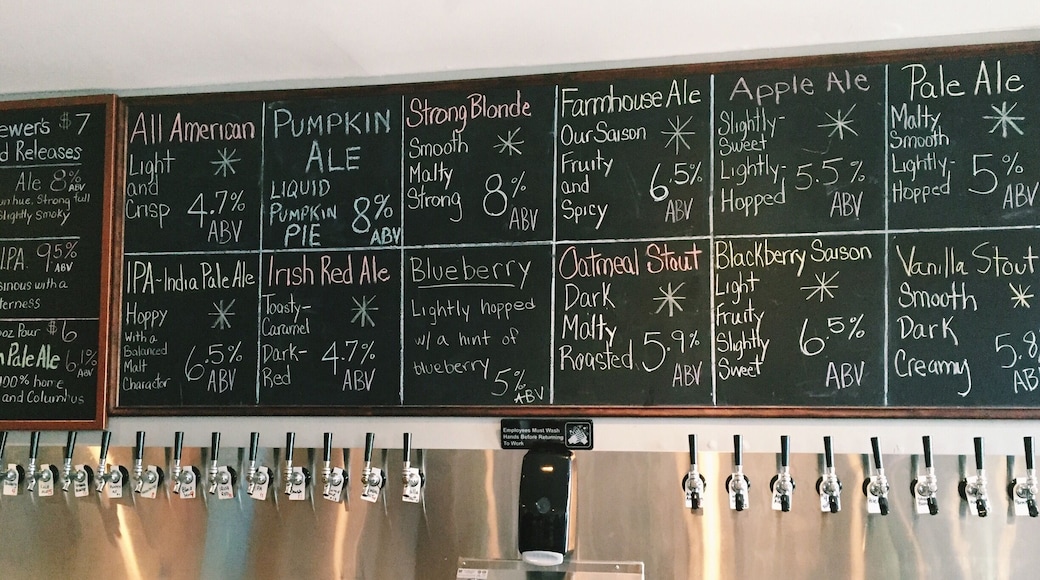 ewer's $7
d Releases
Ale 8% ABV
hue, Strong full
Slightly smoky
IPA 9.5% ABV
sinous with a
terness
oz Pour $6
Pale Ale 6.1% ABV
100% home
and Columbus
All American
Light
and
Crisp 4.7%
ABV
PUMPKIN
ALE
LIQUID
PUMPKIN
PIE 8%
ABV
Strong Blonde
Smooth
Malty
Strong 8%
ABV
Farmhouse Ale
Our Saison
Fruity
and
Spicy 6.5%
ABV
Apple Ale
Slightly-
Sweet
Lightly-
Hopped 5.5%
ABV
Pale Ale
Malty
Smooth
Lightly-
Hopped 5%
ABV
IPA-India Pale Ale
Hoppy
With a
Balanced
Malt
Character 6.5%
ABV
Irish Red Ale
Toasty-
Caramel
Dark-
Red 4.7%
ABV
Blueberry
Lightly hopped
w/ a hint of
blueberry
5%
ABV
Oatmeal Stout
Dark
Malty
Roasted 5.9%
ABV
Blackberry Saison
Light
Fruity
Slightly
Sweet 6.5%
ABV
Vanilla Stout
Smooth
Dark
Creamy 5.8
AB
Employees Must Wash
Hands Before Returning
To Work